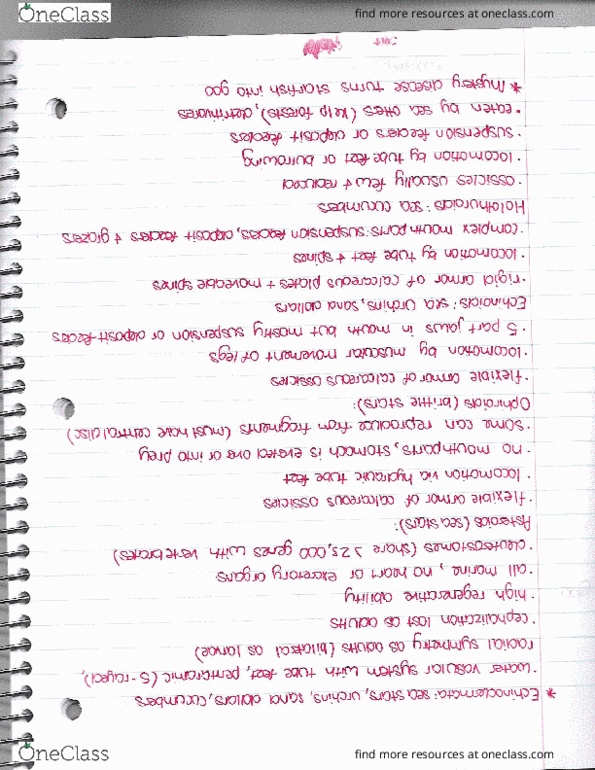 OneClass
find more resources at oneclass.com
* Echinodermata: sea stars, urchins, sand dollars, cucumbers
· water vasular system with tube feet, pentaramic (5-rayed),
radial symmetry as adults (bilateral as larvae)
· cephalization lost as adults
· high regenerative ability
· all marine, no heart or excretory organs
· deuterostomes (share > 25,000 genes with vertebrates)
Asteroids (sea stars):
· flexible armor of calcareous ossicles
· locomotion via hydraulic tube feet
· no mouthparts, stomach is everted over or into prey
· some can reproduce from fragments (must have central disc)
Ophiroids (brittle stars):
· flexible armor of calcareous ossicles
· locomotion by muscular movement of legs
· 5 part jaws in mouth but mostly suspension or deposit feeders
Echinoids: sea urchins, sand dollars
· rigid armor of calcareous plates + moveable spines
· locomotion by tube feet + spines
· complex mouth parts: suspension feeders, deposit feeders + grazers
Holothuroids: sea cucumbers
· ossicles usually few + reduced
· locomotion by tube feet or burrowing
· suspension feeders or deposit feeders
· eaten by sea otters (kelp forests), detritivores
* Mystery disease turns starfish into goo
OneClass
find more resources at oneclass.com